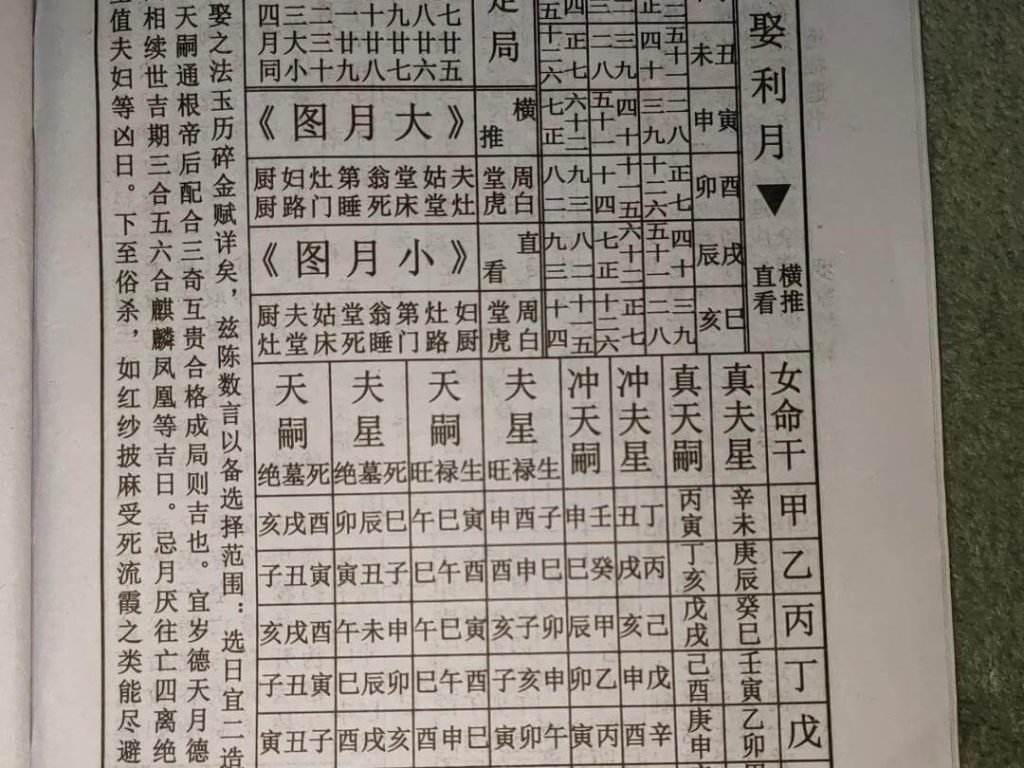 娶利月▼
横推
直看
丑未 五十一 四十 三九 二八 正七 十二六
寅申 二八 三九 四十 五十一 六十二 七正
酉卯 正七 十二六 十一五 十四 九三 八二
戌辰 四十 五十一 六十二 七正 八二 九三
巳亥 三九 二八 正七 十二六 十一五 十四
局
七廿五
八廿六
九廿七
十廿八
一廿九
二三十
三大小
四月同
横推
《大月图》
周堂 夫姑堂翁第灶妇厨
白虎 灶堂床死睡门路厨
直看
《小月图》
周堂 妇灶第翁堂姑夫厨
白虎 厨路门睡死床堂灶
女命干 真夫星 真天嗣 冲夫星 冲天嗣 夫星生禄旺 天嗣生禄旺 夫星死墓绝 天嗣死墓绝
甲 辛未 丙寅 丁丑 壬申 子酉申 寅巳午 巳辰卯 酉戌亥
乙 庚辰 丁亥 丙戌 癸巳 巳申酉 酉午巳 子丑寅 寅丑子
丙 癸巳 戊戌 己亥 甲辰 卯子亥 寅巳午 申未午 酉戌亥
丁 壬寅 己酉 戊申 乙卯 申亥子 酉午巳 卯辰巳 寅丑子
戊 乙卯 庚申 辛酉 丙寅 午卯寅 巳申酉 亥戌酉 子丑寅
娶之法玉历碎金赋详矣，兹陈数言以备选择范围：选日宜二造
天嗣通根帝后配合三奇互贵合格成局则吉也。宜岁德天月德
相续世吉期三合五六合麒麟凤凰等吉日。忌月厌往亡四离绝
值夫妇等凶日。下至俗杀，如红纱披麻受死流霞之类能尽避